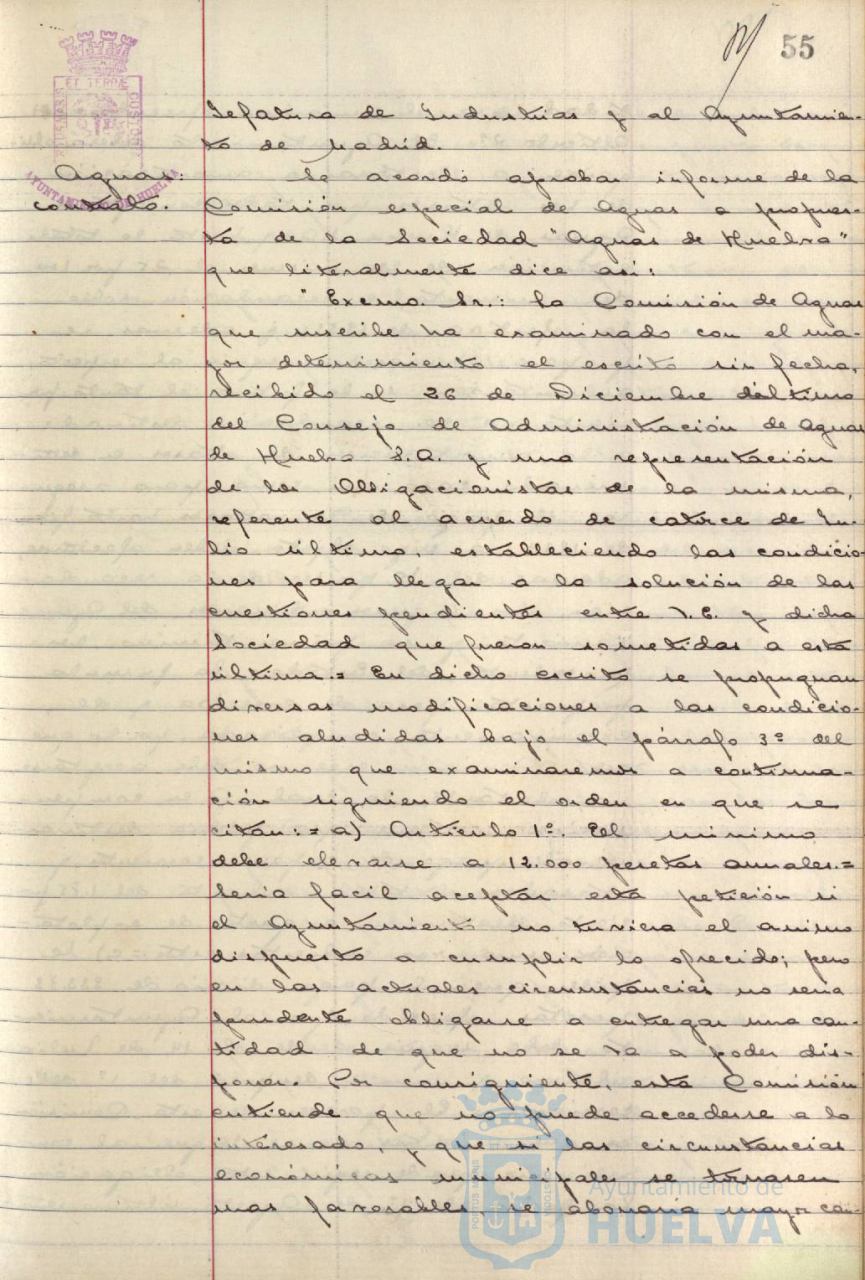 55
Jefatura de Industrias y al Ayuntamien-
to de Madrid.
Aguas:
contrato.
Se acordó aprobar informe de la
Comisión especial de Aguas a propues-
ta de la Sociedad "Aguas de Huelva"
que literalmente dice así:
"Excmo. Sr.: La Comisión de Aguas
que suscribe ha examinado con el ma-
yor detenimiento el escrito sin fecha,
recibido el 26 de Diciembre último
del Consejo de Administración de Aguas
de Huelva S.A. y una representación
de los Obligacionistas de la misma,
referente al acuerdo de catorce de Ju-
lio último, estableciendo las condicio-
nes para llegar a la solución de las
cuestiones pendientes entre V.E. y dicha
Sociedad que fueron sometidas a esta
última.= En dicho escrito se propugnan
diversas modificaciones a las condicio-
nes aludidas bajo el párrafo 3º del
mismo que examinaremos a continua-
ción siguiendo el orden en que se
citan:= a) Artículo 1º. El minimo
debe elevarse a 12.000 pesetas anuales.=
Seria facil aceptar esta petición si
el Ayuntamiento no tuviera el animo
dispuesto a cumplir lo ofrecido; pero
en las actuales circunstancias no seria
prudente obligarse a entregar una can-
tidad de que no se va a poder dis-
poner. Por consiguiente, esta Comisión
entiende que no puede accederse a lo
interesado, y que si las circunstancias
económicas municipales se tornasen
mas favorables, se abonaria mayor can-
AYUNTAMIENTO DE HUELVA
Ayuntamiento de
HUELVA